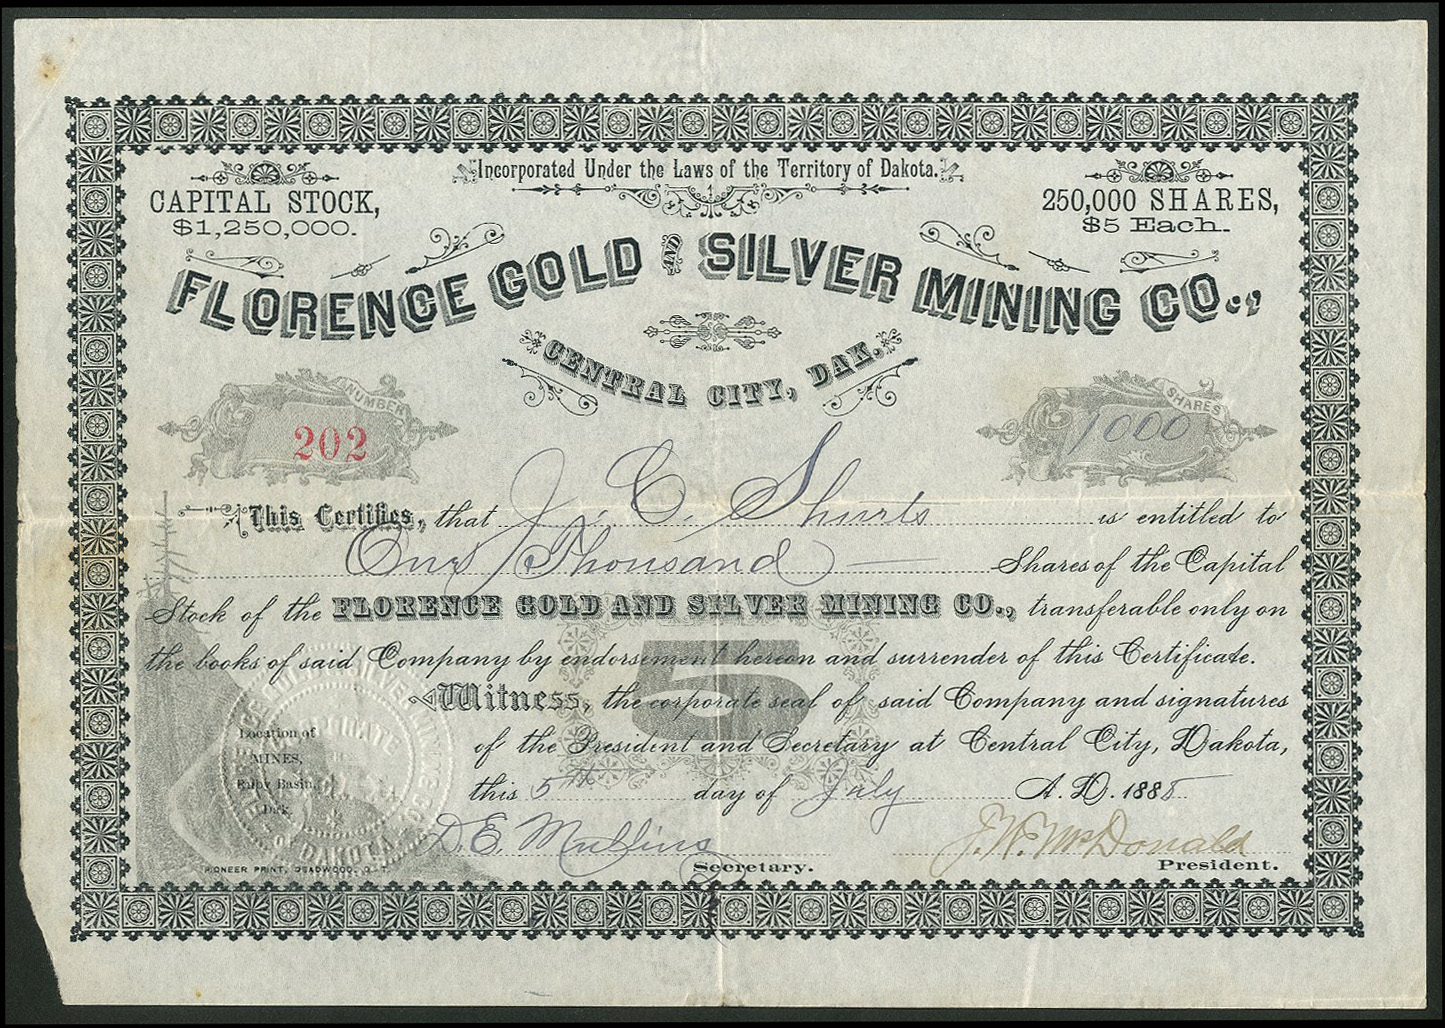 Incorporated Under the Laws of the Territory of Dakota.
CAPITAL STOCK,
$1,250,000.
250,000 SHARES,
$5 Each.
FLORENCE GOLD AND SILVER MINING CO.,
CENTRAL CITY, DAK.
NUMBER
202
SHARES
1000
This Certifies, that J. C. Shurts is entitled to
One Thousand — Shares of the Capital
Stock of the FLORENCE GOLD AND SILVER MINING CO., transferable only on
the books of said Company by endorsement hereon and surrender of this Certificate.
5
Witness, the corporate seal of said Company and signatures
of the President and Secretary at Central City, Dakota,
this 5th day of July A. D. 1888
Location of
MINES,
Ruby Basin,
Dak.
GOLD & SILVER MINING CO.
OF DAKOTA
D. E. Mullins
Secretary.
J. W. McDonald
President.
PIONEER PRINT, DEADWOOD, D. T.